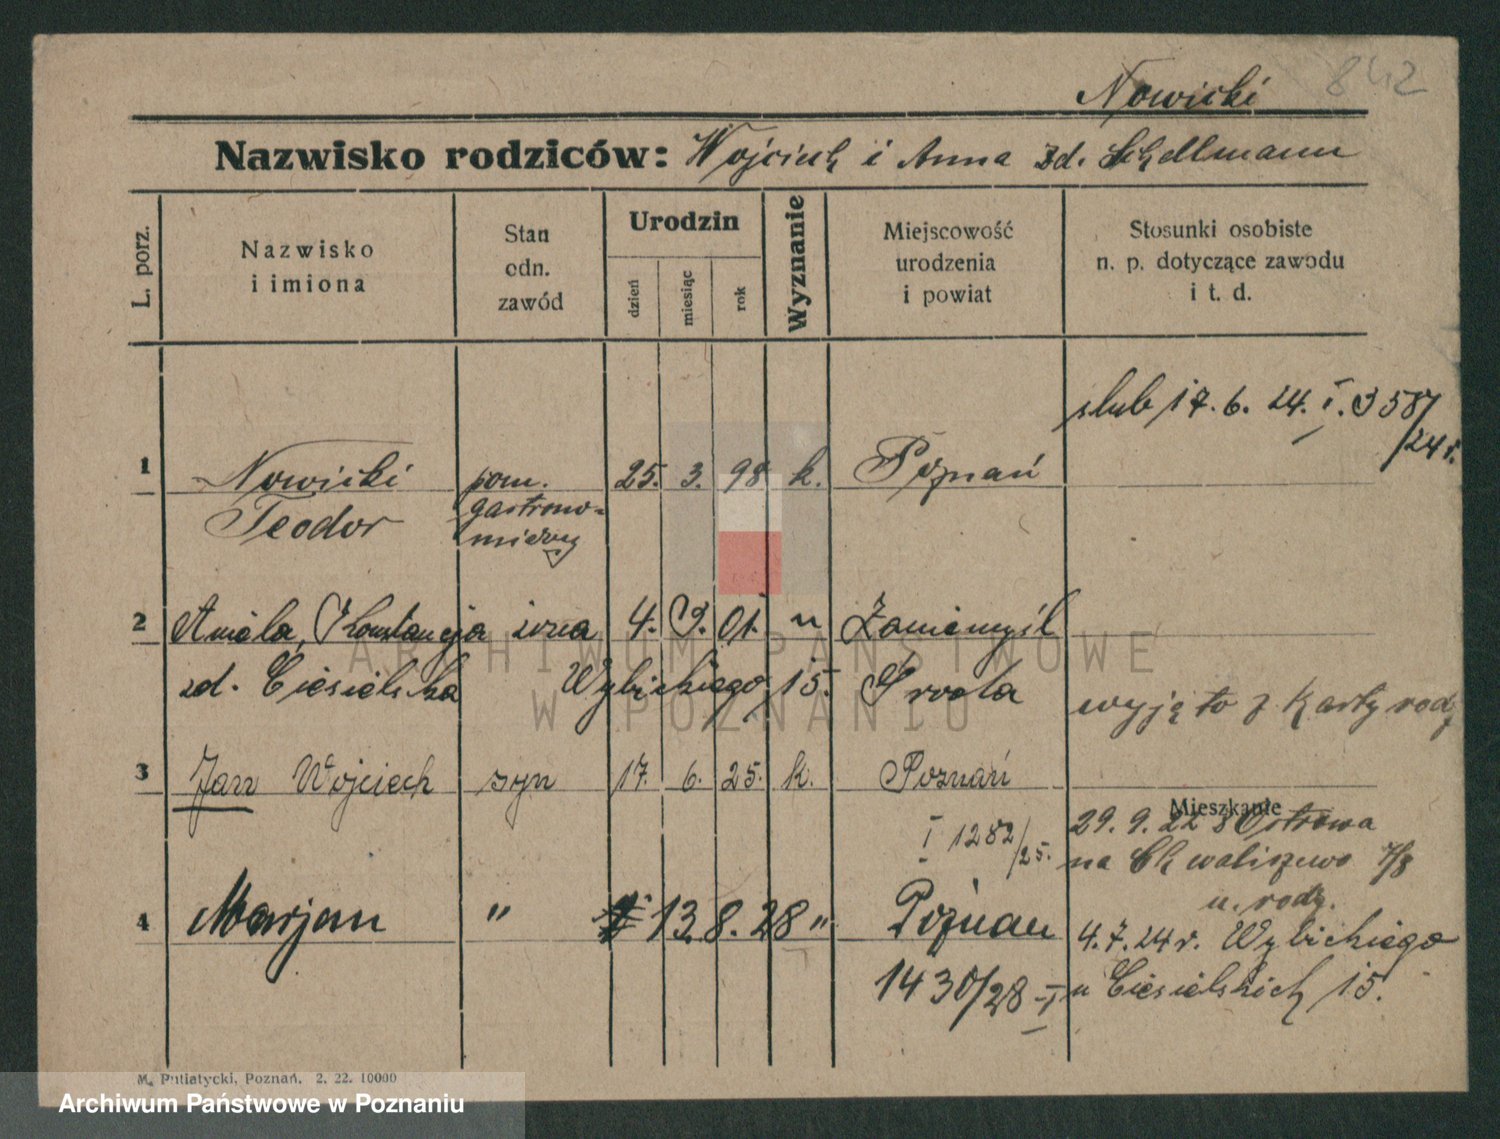 842
Nowicki
Nazwisko rodziców: Wojciech i Anna zd. Schellmann
L. porz.
Nazwisko
i imiona
Stan
odn.
zawód
Urodzin
dzień
miesiąc
rok
Wyznanie
Miejscowość
urodzenia
i powiat
Stosunki osobiste
n. p. dotyczące zawodu
i t. d.
ślub 17. 6. 24. I. 3587
/24r.
1 Nowicki pom. 25. 3. 98 k. Poznań
Teodor gastrono-
miczny
2 Aniela, Konstancja żona 4. 9. 01. " Zaniemyśl
zd. Ciesielska Wybickiego 15. Środa
wyjęto z karty rodz
3 Jan Wojciech syn 17. 6. 25. k. Poznań
I 1282/25.
Mieszkanie
29. 9. 22 z Ostrowa
na Chwaliszewo 7/8
u. rodz.
4 Marjan " 13. 8. 28 " Poznań
1430/28 I
4. 7. 24 r. Wybickiego
u Ciesielskich 15.
M. Putiatycki, Poznań. 2. 22. 10000
ARCHIWUM PAŃSTWOWE
W POZNANIU
Archiwum Państwowe w Poznaniu